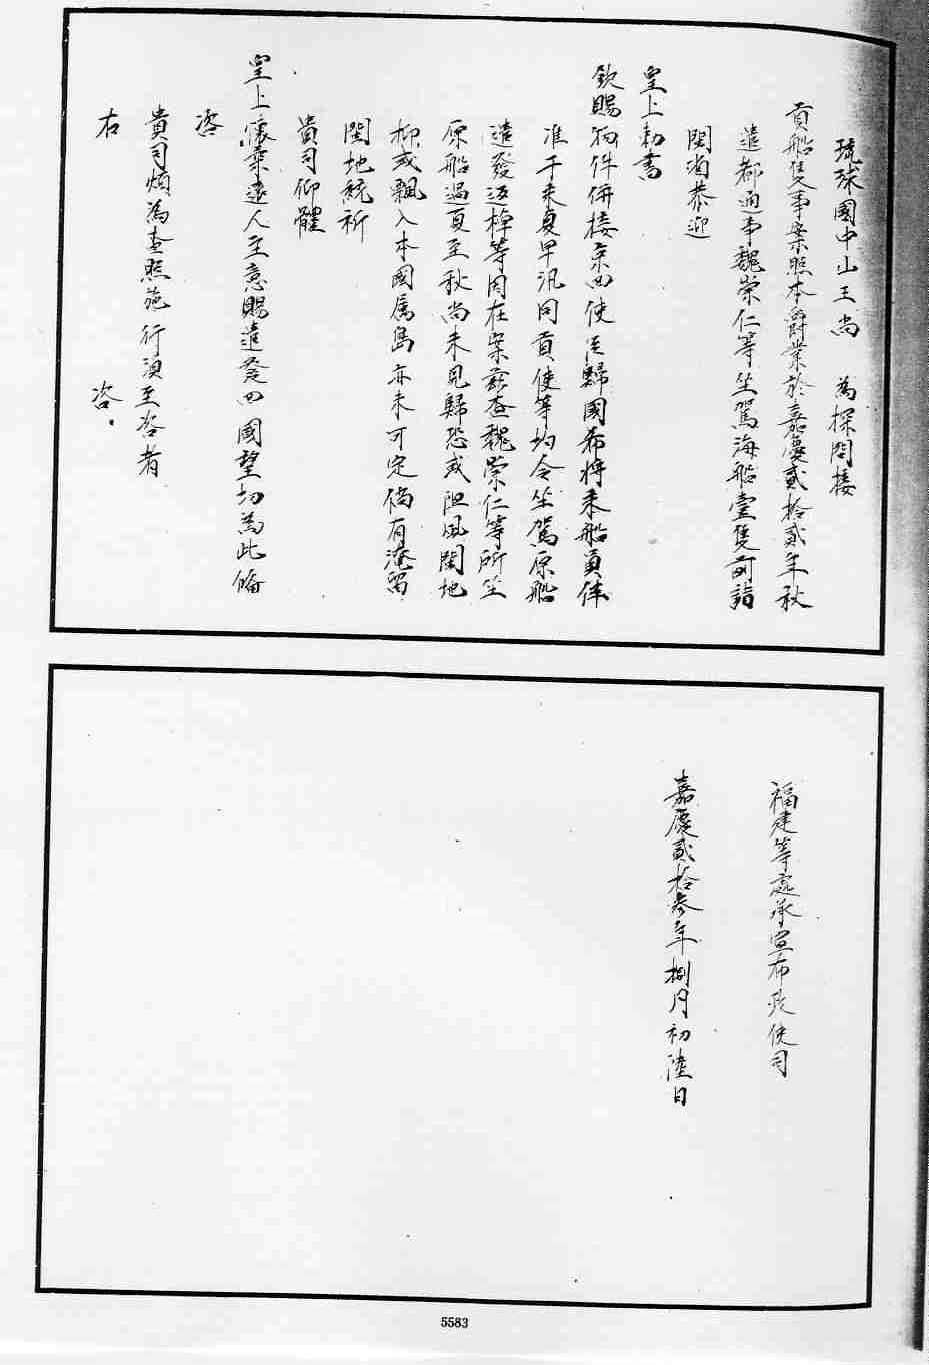 琉球國中山王尚　為探問接
貢船隻事案照本爵業於嘉慶貳拾貳年秋
遣都通事魏崇仁等坐駕海船壹隻前詣
閩省恭迎
皇上勅書
欽賜物件併接京回使臣歸國希將來船員伴
准于来夏早汛同貢使等均令坐駕原船
遣發返棹等因在案茲查魏崇仁等所坐
原船過夏至秋尚未見歸恐或阻風閩地
抑或飄入本國属島亦未可定倘有淹留
閩地統祈
貴司仰體
皇上懷柔遠人至意賜遣發回國望切為此俻
咨
貴司煩為查照施行須至咨者
右　　咨
福建等處承宣布政使司
嘉慶貳拾參年捌月初陸日
5583